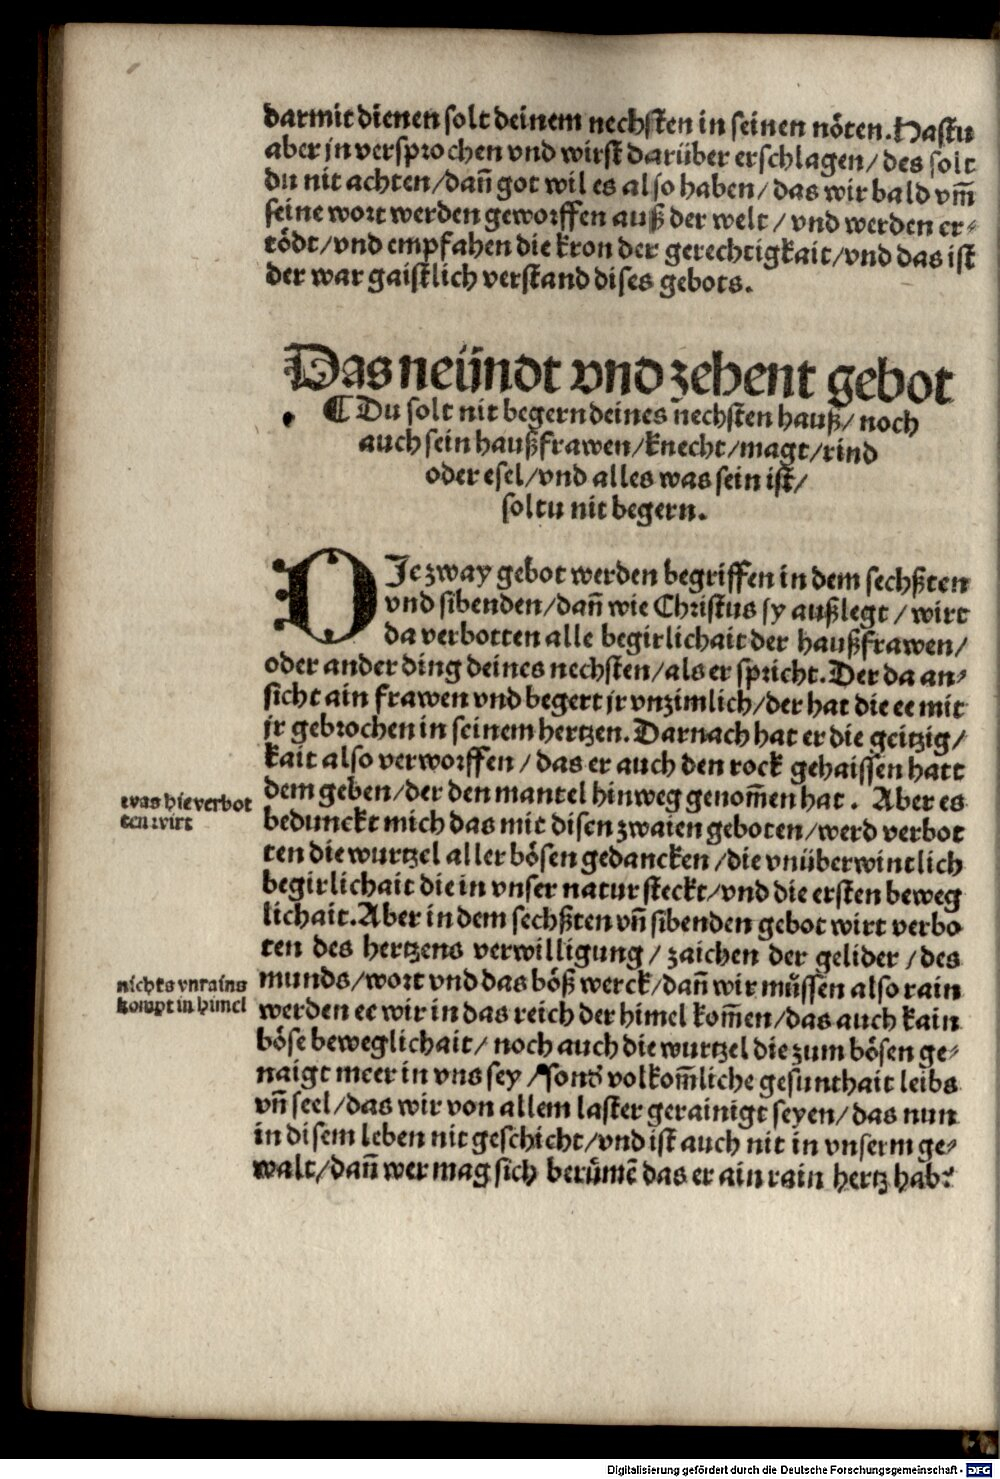 darmit dienen solt deinem nechsten in seinen nöten. Hastu
aber jn versprochen vnd wirst darüber erschlagen/ des solt
du nit achten/dañ got wil es also haben/ das wir bald vm̃
seine wort werden geworffen auß der welt / vnd werden er⸗
tödt/vnd empfahen die kron der gerechtigkait/vnd das ist
der war gaistlich verstand dises gebots.
Das neündt vnd zehent gebot
¶ Du solt nit begern deines nechsten hauß/ noch
auch sein haußfrawen/knecht/magt/rind
oder esel/vnd alles was sein ist/
soltu nit begern.
DJe zway gebot werden begriffen in dem sechßten
vnd sibenden/dañ wie Christus sy außlegt / wirt
da verbotten alle begirlichait der haußfrawen/
oder ander ding deines nechsten/als er spricht. Der da an⸗
sicht ain frawen vnd begert jr vnzimlich/der hat die ee mit
jr gebrochen in seinem hertzen. Darnach hat er die geitzig/
kait also verworffen / das er auch den rock gehaissen hatt
dem geben/der den mantel hinweg genom̃en hat. Aber es
was hie verbot
ten wirt
bedunckt mich das mit disen zwaien geboten/werd verbot
ten die wurtzel aller bösen gedancken /die vnüberwintlich
begirlichait die in vnser natur steckt/vnd die ersten beweg
lichait. Aber in dem sechßten vñ sibenden gebot wirt verbo
ten des hertzens verwilligung / zaichen der gelider /des
munds/wort vnd das böß werck/dañ wir müssen also rain
nichts vnrains
kompt in himel
werden ee wir in das reich der himel kom̃en/das auch kain
böse beweglichait/ noch auch die wurtzel die zum bösen ge⸗
naigt meer in vns sey /sond̓ volkom̃liche gesunthait leibs
vñ seel/das wir von allem laster gerainigt seyen/das nun
in disem leben nit geschicht/vnd ist auch nit in vnserm ge⸗
walt/dañ wer mag sich berümē das er ain rain hertz hab?
Digitalisierung gefördert durch die Deutsche Forschungsgemeinschaft - DFG